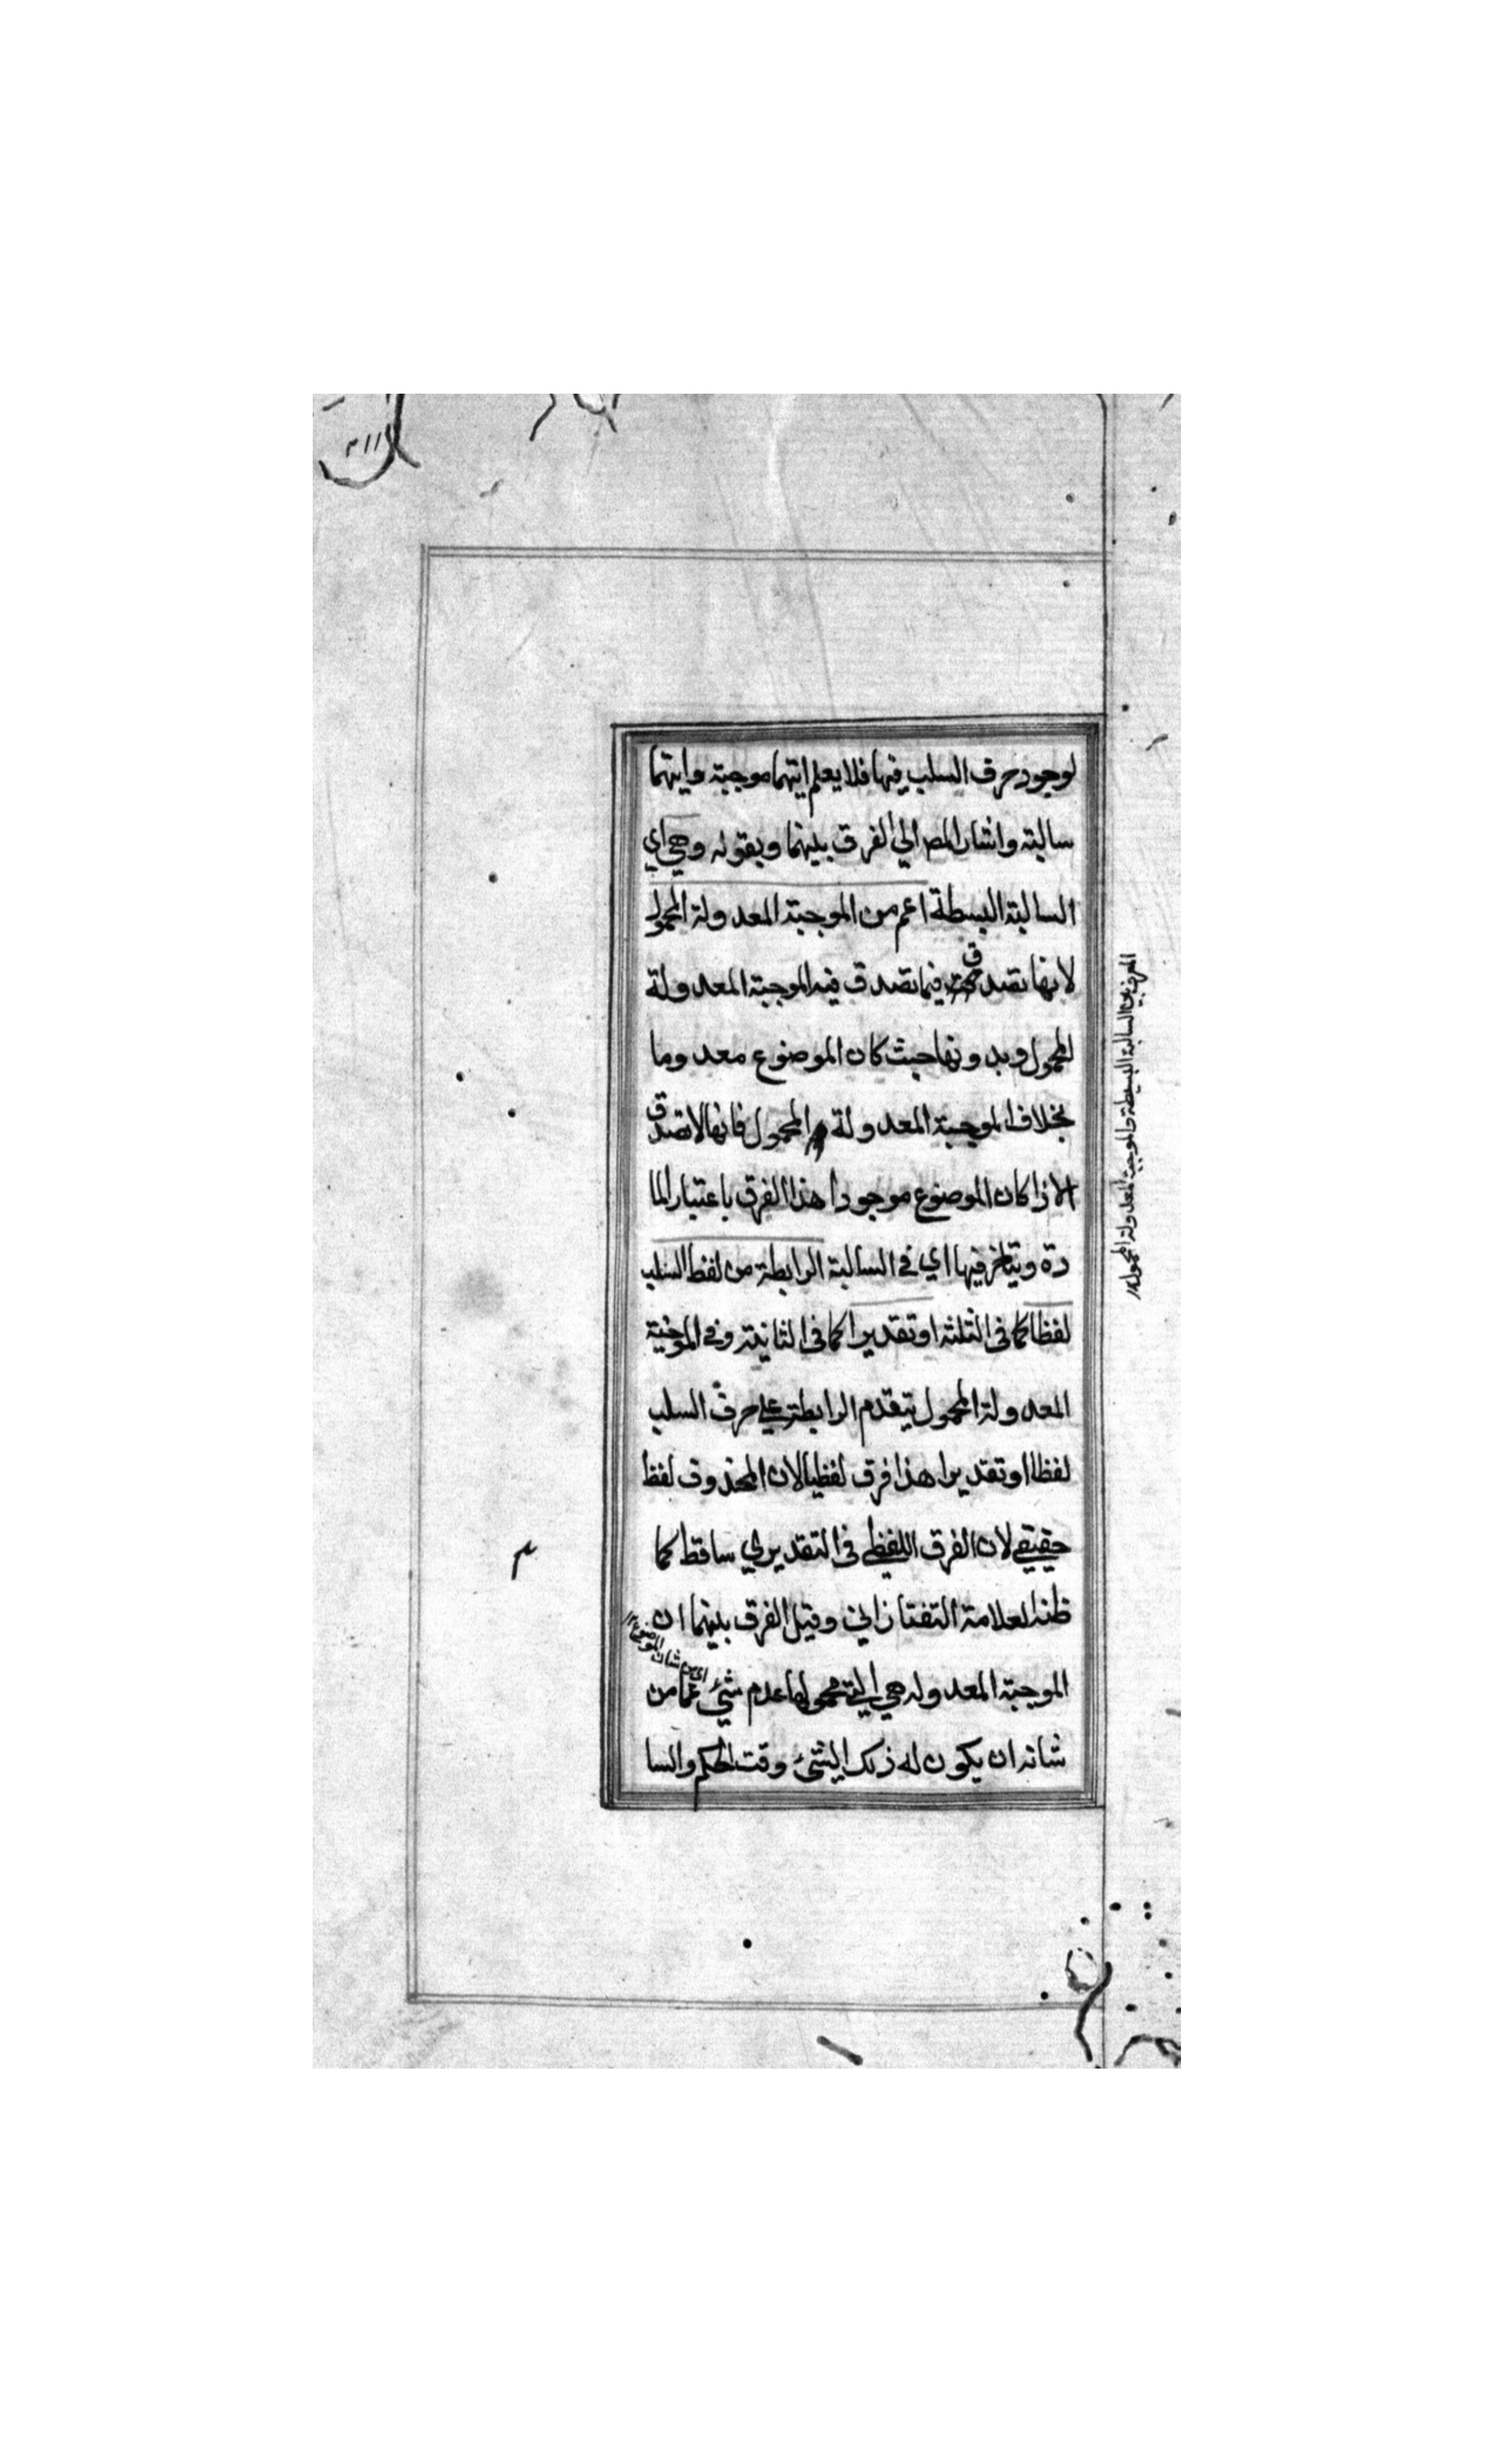 لوجود حرف السلب فيها فلا يعلم ايتهما موجبة وايتهما
سالبة واشار المص الي الفرق بينهما وبقوله وهي اي
السالبة البسطة اعم من الموجبة المعدولة المحمول
لانها تصدق فيما تصدق فيه الموجبة المعدولة
المحمول وبدونها حيث كان الموضوع معدوما
بخلاف الموجبة المعدولة المحمول فانها لا تصدق
الا اذا كان الموضوع موجودا هذا الفرق باعتبار الما
دة ويتاخر فيها اي في السالبة الرابطة من لفظ السلب
لفظا كما في الثلثه او تقديرا كما في الثانية وفي الموجبة
المعدولة المحمول يتقدم الرابطة علي حرف السلب
لفظا او تقديرا هذا فرق لفظيا لان المحذوف لفظ
حقيقي لان الفرق اللفظي في التقديري ساقط كما
ظنه العلامة التفتازاني وقيل الفرق بينهما ان
الموجبة المعدوله هي التي محمولها عدم شئ عما من
شانه ان يكون له ذلك الشئ وقت الحكم والسا
اي من شان الموضوع ١٢
الفرق بين السالبة البسيطة والموجبة المعدولة المحمول ١٢